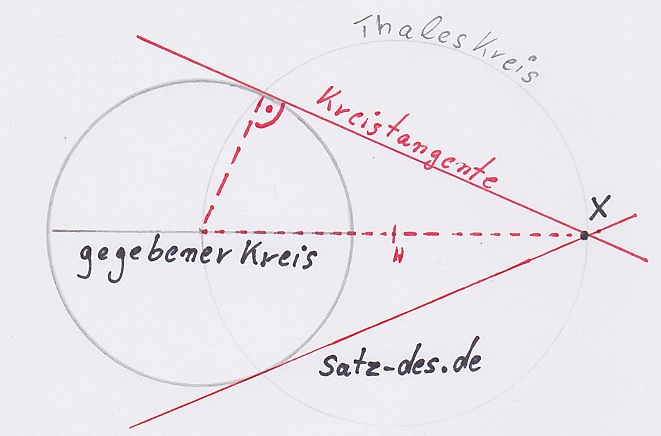 Thales Kreis
Kreistangente
X
gegebener Kreis
M
satz-des.de